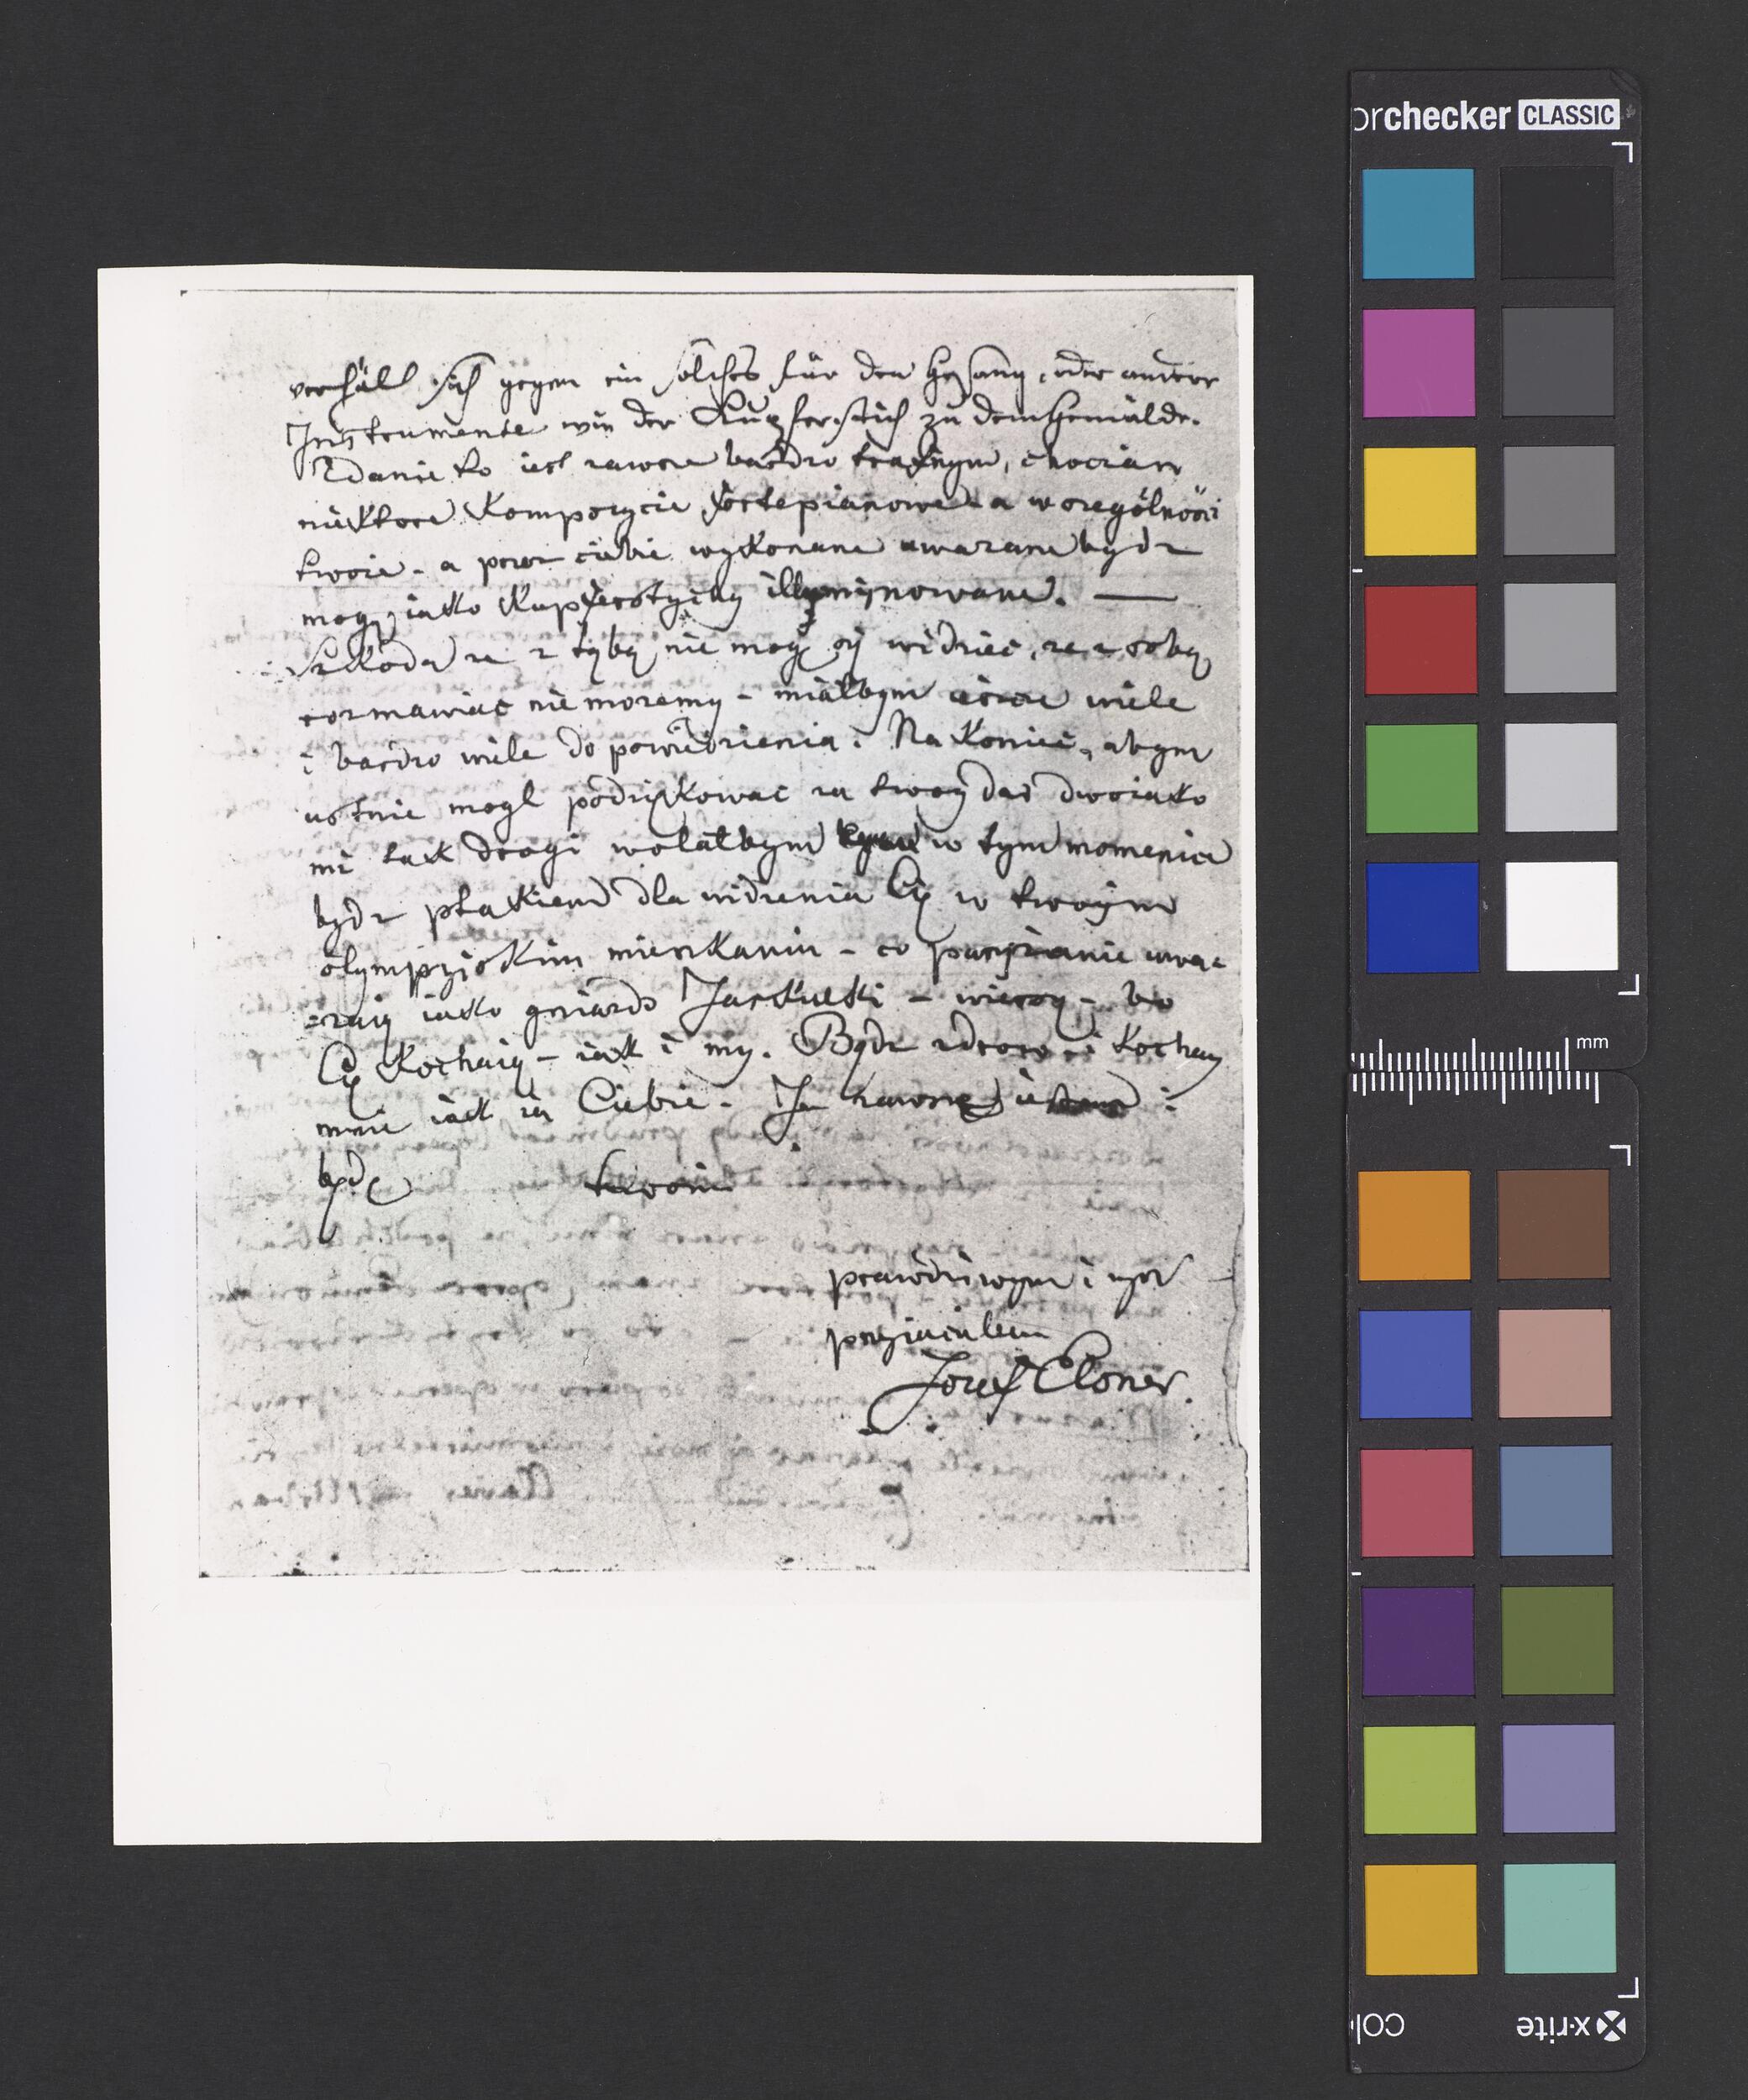 verhält sich gegen ein solches für den Gesang, oder andere
Instrumente wie der Kupferstich zu dem Gemälde.
Zdanie to iest zawsze bardzo trafnym, chociarz
niektore Kompozycie fortepianowe - a w szególnosci
twoie - a przez ciebie wykonane uwazane bydz
mogą iako Kupfersztychy illyminowane. —
Szkoda ze z tobą nie mogę się widziec, ze z sobą
rozmawiac nie mozemy - miałbym ieszcze wiele
i bardzo wiele do powiedzienia. Na koniec, abym
ustnie mogl podziękowac za twoy dar dwoiako
mi tak drogi wolałbym w tym momencie
bydz ptakiem dla widzenia Cię w twoiym
olympijskim mieszkaniu - co paryżanie uwa=
=zaią iako gniazdo Jaskulki - wierzą - bo
Cię Kochaią - iak i my. Bądz zdrow i kochay
mnie iak ia Ciebie. Ja zawsze iestem i
będę twoim
prawdziwym i
przyiacielem
Jozef Elsner.
orchecker CLASSIC
mm
x-rite
col